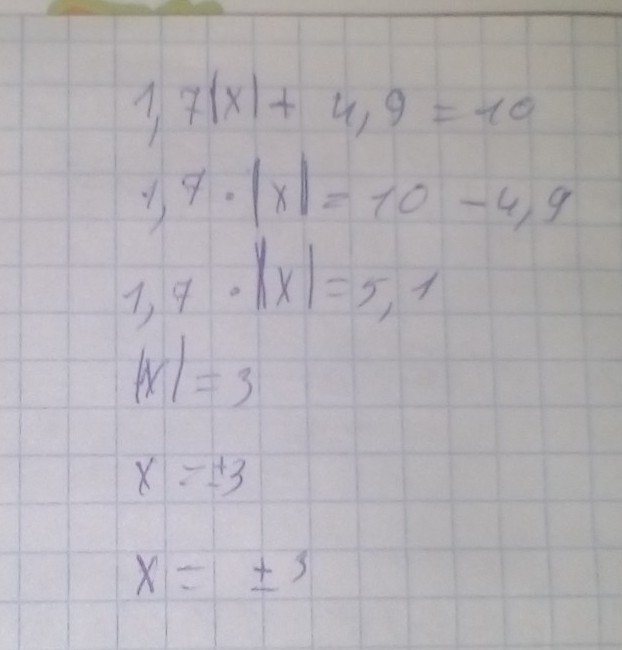 1,7|x| + 4,9 = 10
1,7 · |x| = 10 - 4,9
1,7 · |x| = 5,1
|x| = 3
x = ±3
x = ± 3